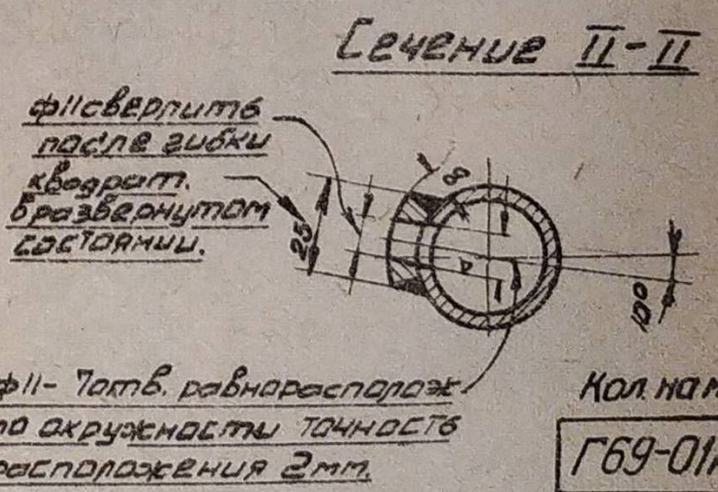 Сечение II-II
ф11 сверлить
после гибки
квадрат.
в развернутом
состоянии.
25
8
4
10°
ф11- 7 отв. равнорасполож
по окружности точность
расположения 2мм.
Кол. на
Г69-01